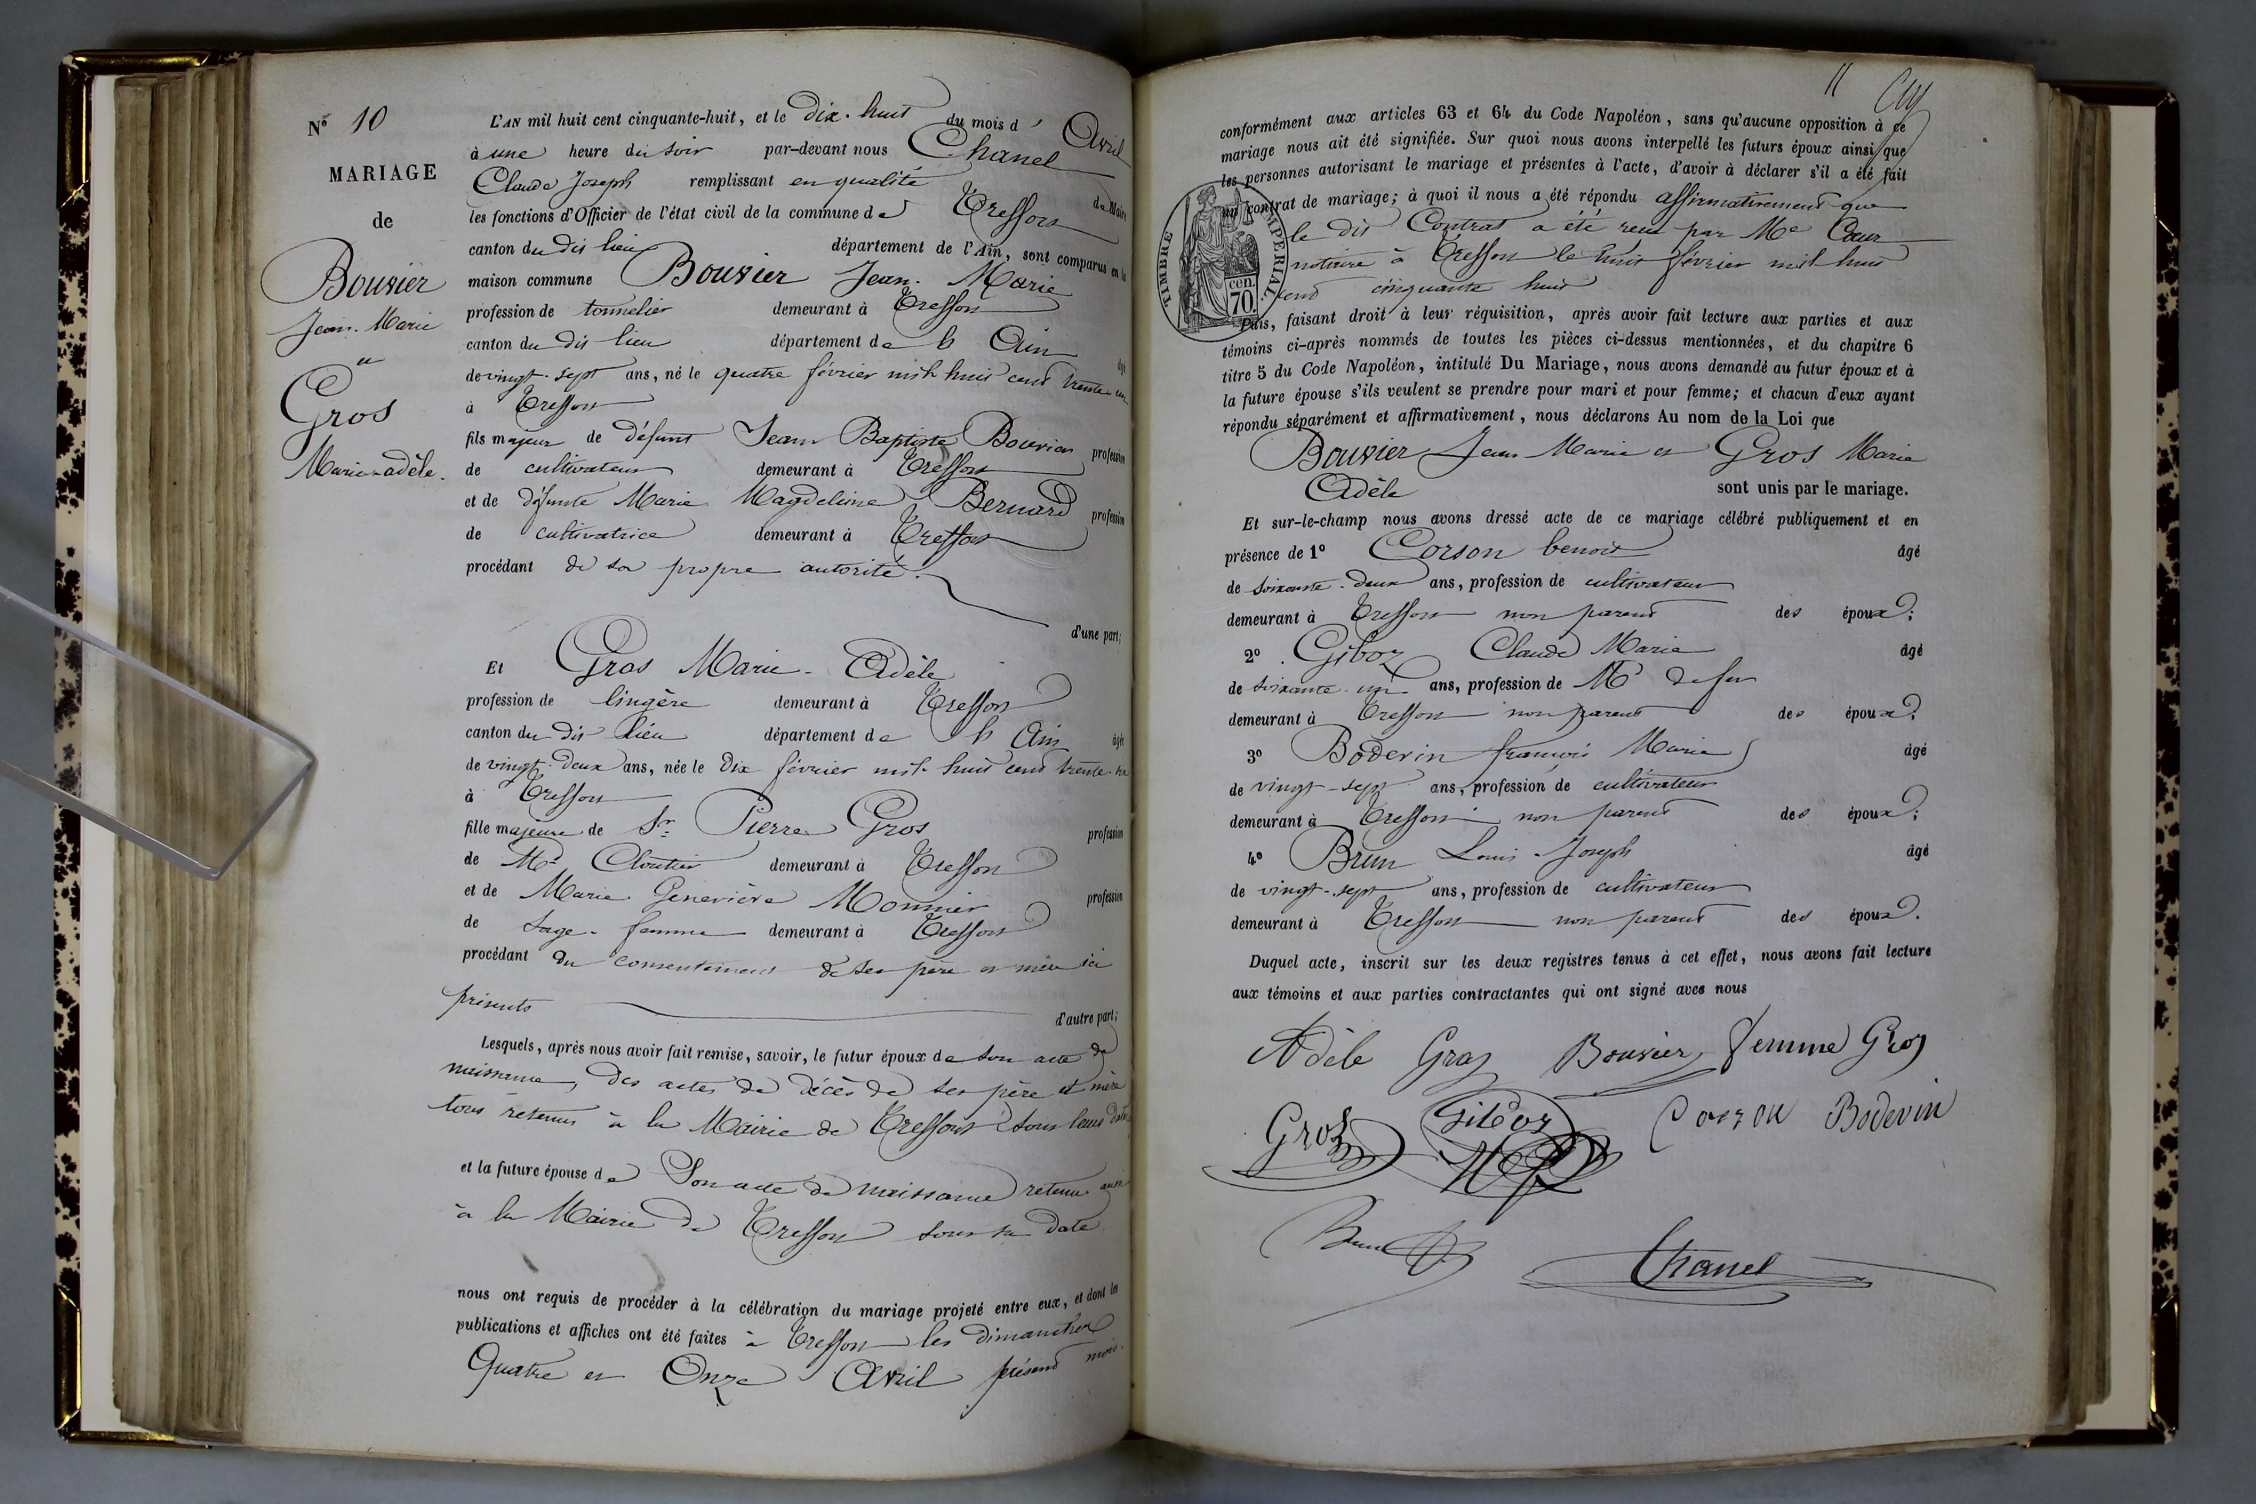 Nº 10
MARIAGE
de
Bouvier
Jean-Marie
et
Gros
Marie-adèle.
L'AN mil huit cent cinquante-huit, et le Dix-huit du mois d'Avril
à une heure du soir par-devant nous Chanel
Claude Joseph remplissant en qualité de Maire
les fonctions d'Officier de l'état civil de la commune de Treffort
canton du dit lieu département de l'Ain, sont comparus en la
maison commune Bouvier Jean-Marie
profession de tonnelier demeurant à Treffort
canton du dit lieu département de l'Ain âgé
de vingt-sept ans, né le quatre février mil huit cent trente un
à Treffort
fils majeur de défunt Jean Baptiste Bouvier profession
de cultivateur demeurant à Treffort
et de défunte Marie Magdeleine Bernard profession
de cultivatrice demeurant à Treffort
procédant de sa propre autorité.
d'une part;
Et Gros Marie-Adèle
profession de lingère demeurant à Treffort
canton du dit lieu département de l'Ain âgée
de vingt-deux ans, née le dix février mil huit cent trente-six
à Treffort
fille majeure de Sr. Pierre Gros profession
de Md Cloutier demeurant à Treffort
et de Marie Geneviève Monnier profession
de Sage-femme demeurant à Treffort
procédant du consentement de ses père et mère ici
présents
d'autre part;
Lesquels, après nous avoir fait remise, savoir, le futur époux de son acte de
naissance, des actes de décès de ses père et mère
tous retenus à la Mairie de Treffort sous leurs dates
et la future épouse de Son acte de naissance retenu aussi
à la Mairie de Treffort sous sa date
nous ont requis de procéder à la célébration du mariage projeté entre eux, et dont les
publications et affiches ont été faites à Treffort les dimanches
Quatre et Onze Avril présent mois.
11
conformément aux articles 63 et 64 du Code Napoléon, sans qu'aucune opposition à ce
mariage nous ait été signifiée. Sur quoi nous avons interpellé les futurs époux ainsi que
les personnes autorisant le mariage et présentes à l'acte, d'avoir à déclarer s'il a été fait
un contrat de mariage; à quoi il nous a été répondu affirmativement que
le dit Contrat a été reçu par Me Coeur
notaire à Treffort le huit février mil huit
cent cinquante huit
TIMBRE IMPERIAL.
70 cen.
Puis, faisant droit à leur réquisition, après avoir fait lecture aux parties et aux
témoins ci-après nommés de toutes les pièces ci-dessus mentionnées, et du chapitre 6
titre 5 du Code Napoléon, intitulé Du Mariage, nous avons demandé au futur époux et à
la future épouse s'ils veulent se prendre pour mari et pour femme; et chacun d'eux ayant
répondu séparément et affirmativement, nous déclarons Au nom de la Loi que
Bouvier Jean Marie et Gros Marie
Adèle sont unis par le mariage.
Et sur-le-champ nous avons dressé acte de ce mariage célébré publiquement et en
présence de 1º Corson benoit âgé
de soixante-deux ans, profession de cultivateur
demeurant à Treffort non parent des époux;
2º Giboz Claude Marie âgé
de soixante-un ans, profession de Md de fer
demeurant à Treffort non parent des époux;
3º Bodevin françois Marie âgé
de vingt-sept ans, profession de cultivateur
demeurant à Treffort non parent des époux;
4º Brun Louis-Joseph âgé
de vingt-sept ans, profession de cultivateur
demeurant à Treffort non parent des époux.
Duquel acte, inscrit sur les deux registres tenus à cet effet, nous avons fait lecture
aux témoins et aux parties contractantes qui ont signé avec nous
Adèle Gros Bouvier femme Gros
Gros Giboz Corson Bodevin
Brun Chanel